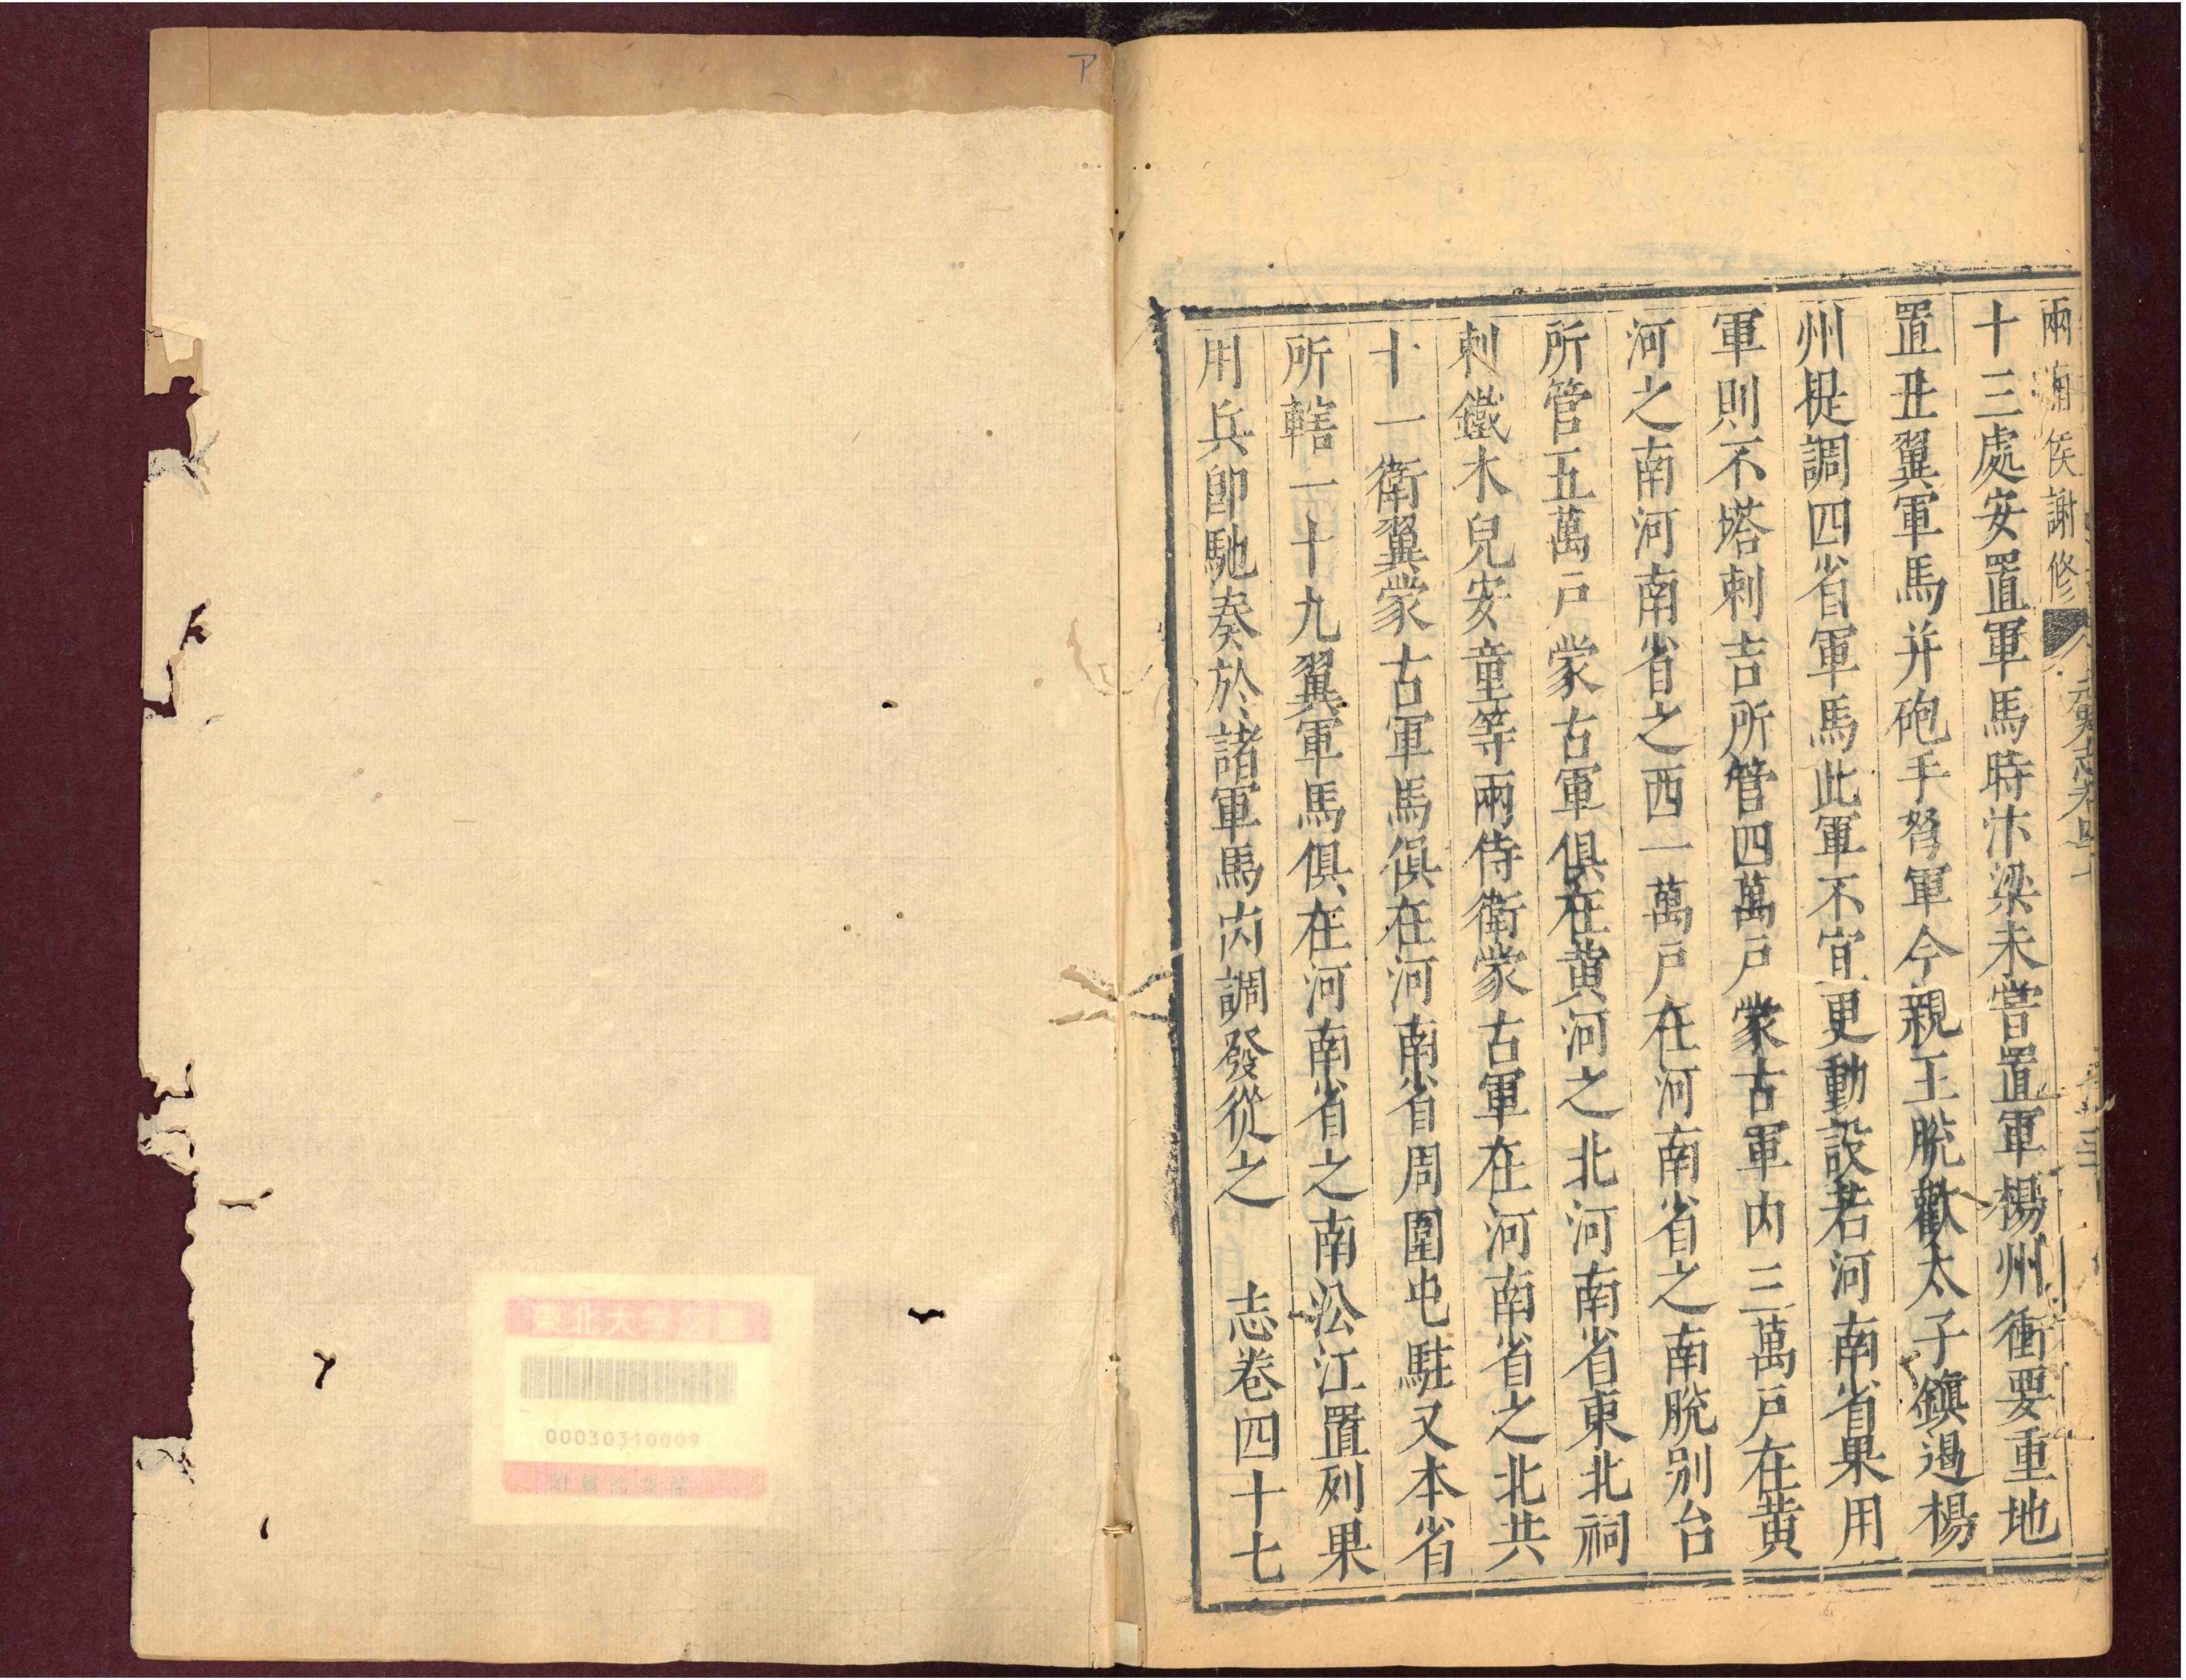 十三處安置軍馬時汴梁未嘗置軍楊州衝要重地
置丑翼軍馬并砲手弩軍今親王脫歡太子鎮遏楊
州提調四省軍馬此軍不宜更動設若河南省果用
軍則不塔剌吉所管四萬戶蒙古軍內三萬戶在黄
河之南河南省之西一萬戶在河南省之南脫别台
所管五萬戶蒙古軍俱在黄河之北河南省東北祠
剌鐵木兒安童等兩侍衛蒙古軍在河南省之北共
十一衛翼蒙古軍馬俱在河南省周圍屯駐又本省
所轄一十九翼軍馬俱在河南省之南㳂江置列果
用兵卽馳奏於諸軍馬内調發從之 志卷四十七
00030310009